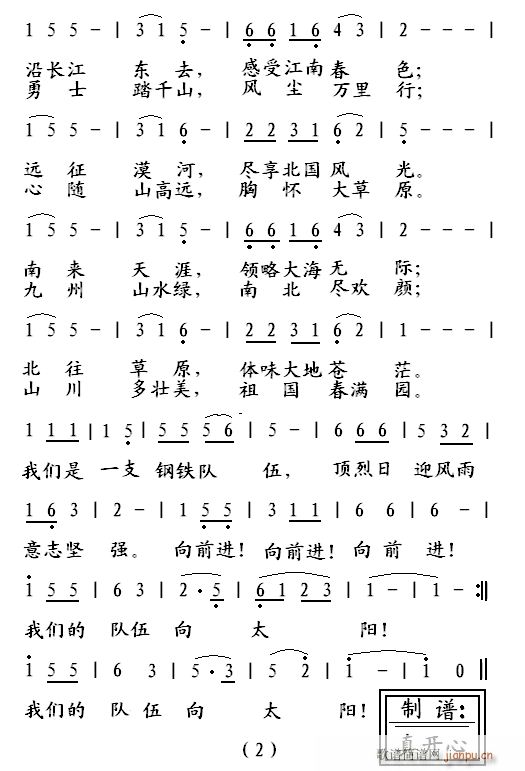 1 5 5 – | 3 1 5 – | 6 6 1 6 4 3 | 2 – – – |
沿长江 东去， 感受江南春 色；
勇 士 踏千山， 风 尘 万里 行；
1 5 5 – | 3 1 6 – | 2 2 3 1 6 2 | 5 – – – |
远 征 漠 河， 尽享北国风 光。
心 随 山高远， 胸 怀 大草 原。
1 5 5 – | 3 1 5 – | 6 6 1 6 4 3 | 2 – – – |
南 来 天 涯， 领略大海无 际；
九 州 山水绿， 南 北 尽欢 颜；
1 5 5 – | 3 1 6 – | 2 2 3 1 6 2 | 1 – – – |
北 往 草 原， 体味大地苍 茫。
山 川 多壮美， 祖 国 春满 园。
1 1 1 | 1 5 | 5 5 5 6 | 5 – | 6 6 6 | 5 3 2 |
我们是 一支 钢铁队 伍， 顶烈日 迎风雨
1 6 3 | 2 – | 1 5 5 | 3 1 1 | 6 6 | 6 – |
意志坚 强。 向前进！ 向前进！ 向 前 进！
1 5 5 | 6 3 | 2 · 5 | 6 1 2 3 | 1 – | 1 – :||
我们的 队伍 向 太 阳！
1 5 5 | 6 3 | 5 · 3 | 5 2 | 1 – | 1 0 ||
我们的 队 伍 向 太 阳！
制 谱：
真开心
（2）
歌谱简谱网
jianpu.cn